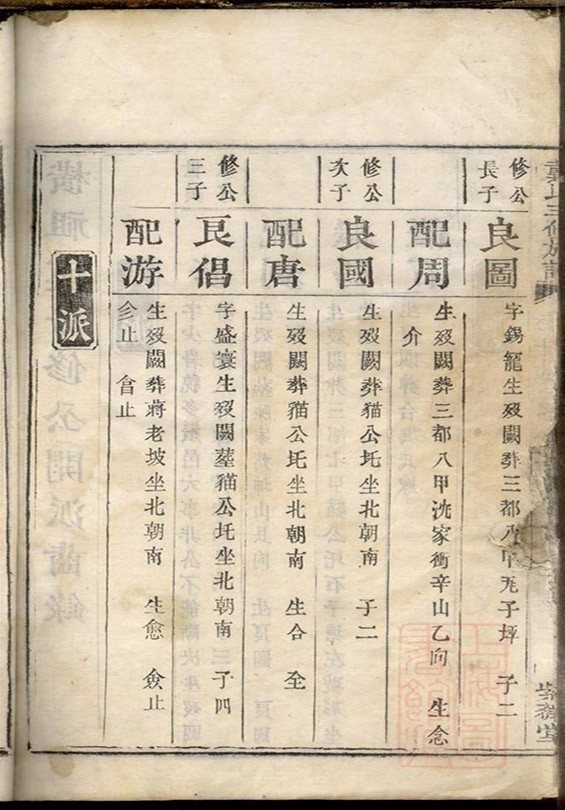 修公長子
良圖
字錫籠生歿闕葬三都八甲 子坪 子二
配周
生歿闕葬三都八甲沈家衝辛山乙向 生念
介
修公次子
良國
生歿闕葬猫公圫坐北朝南 子二
配唐
生歿闕葬猫公圫坐北朝南 生合 全
修公三子
良倡
字盛寰生歿闕塟猫公圫坐北朝南 三子四
配游
生歿闕葬蔣老坡坐北朝南 生愈 僉止
止 會止
十派